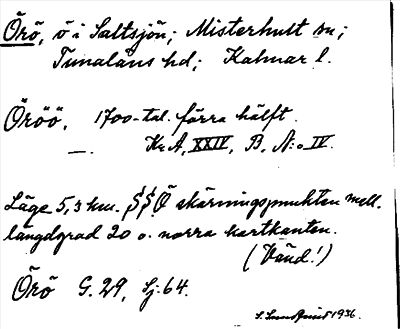 Örö, ö i Saltsjön; Misterhult sn;
Tunaläns hd; Kalmar l.
Öröö. 1700-tal. förra hälft.
—. Kr. A, XXIV, B, N:o IV.
Läge 5,3 km. S§Ö skärningspunkten mell.
längdgrad 20 o. norra kartkanten.
(Vänd!)
Örö G. 29, Sj: 64.
1936.